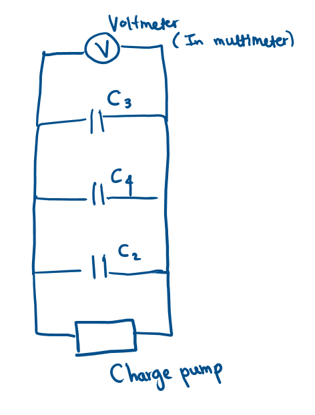 Voltmeter
(In multimeter)
V
C3
C4
C2
Charge pump